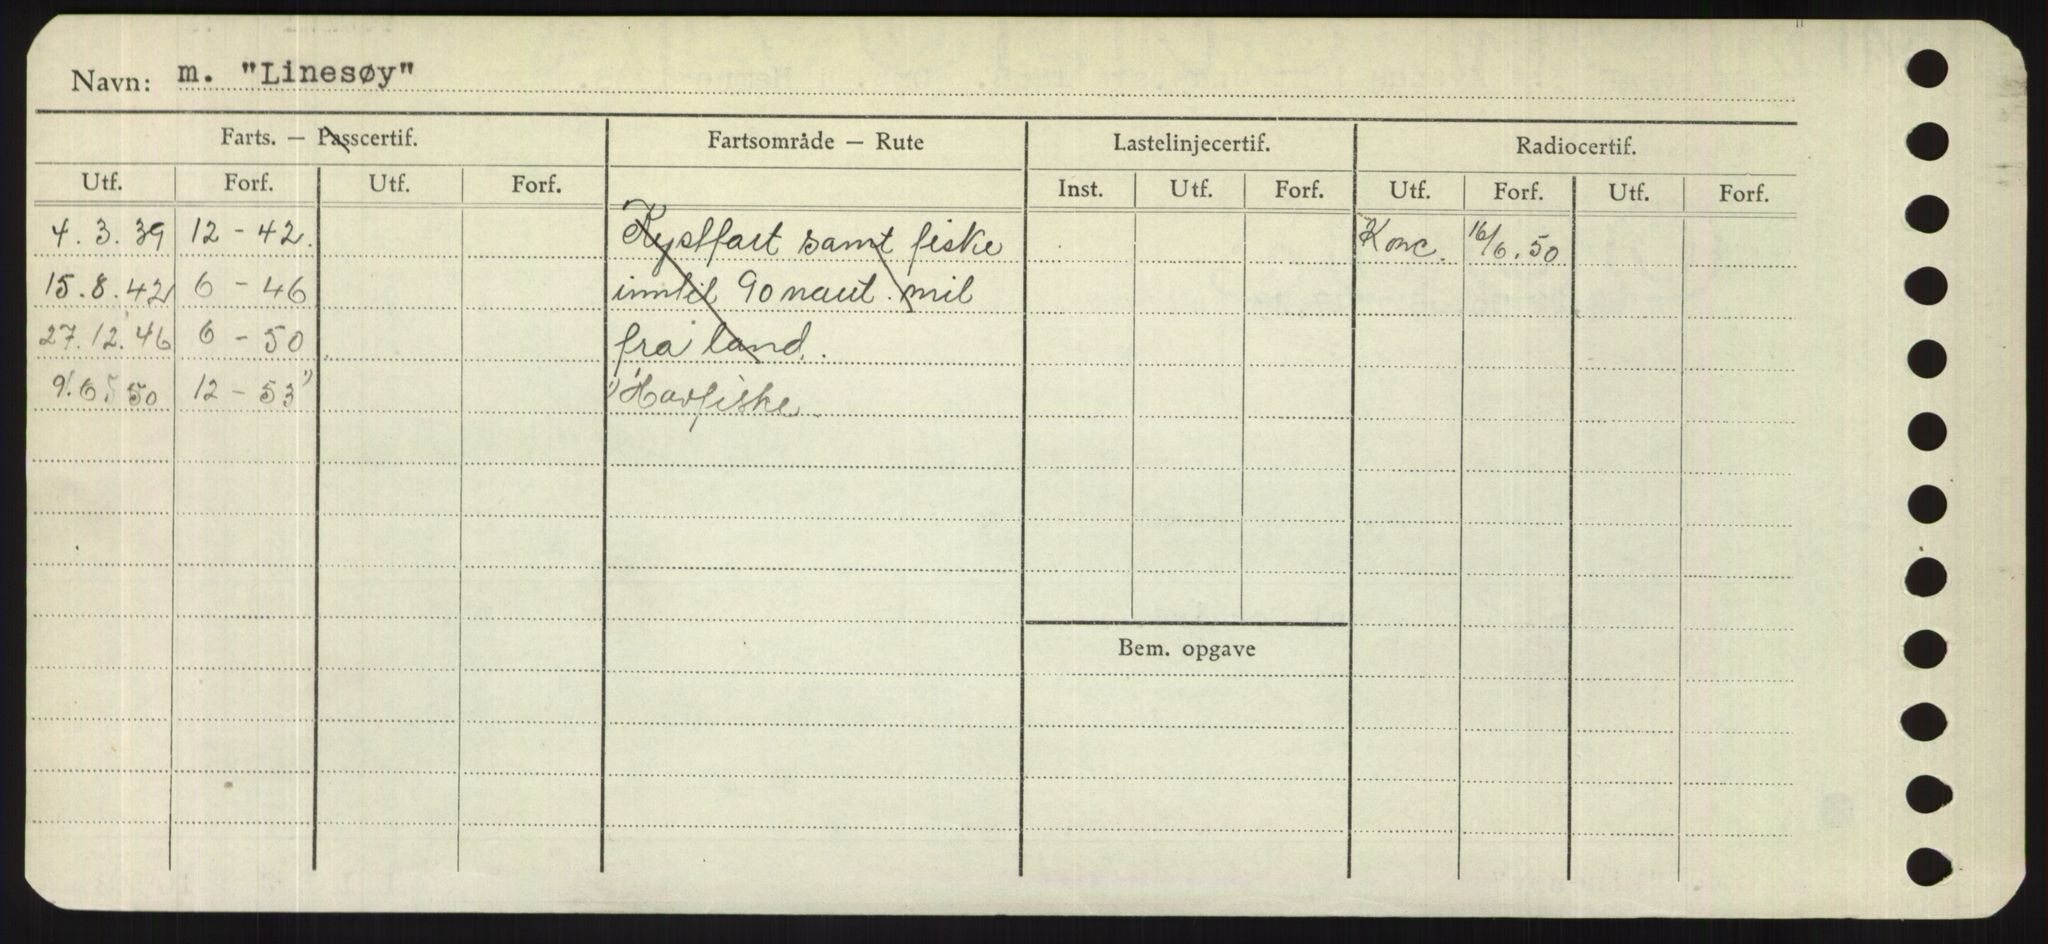 Navn: m. "Linesøy"
Farts. — Passcertif. Fartsområde — Rute Lastelinjecertif. Radiocertif.
Utf. Forf. Utf. Forf. Inst. Utf. Forf. Utf. Forf. Utf. Forf.
4.3.39 12-42. Kystfart samt fiske Konc. 16/6.50
15.8.42 6-46 inntil 90 naut. mil
27.12.46 6-50 fra land.
9.6.50 12-53 1) 1) Havfiske
Bem. opgave